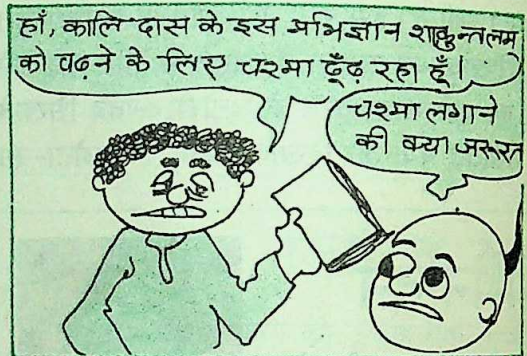 हाँ, कालिदास के इस अभिज्ञान शाकुन्तलम्
को पढ़ने के लिए चश्मा ढूँढ़ रहा हूँ।
चश्मा लगाने
की क्या जरूरत